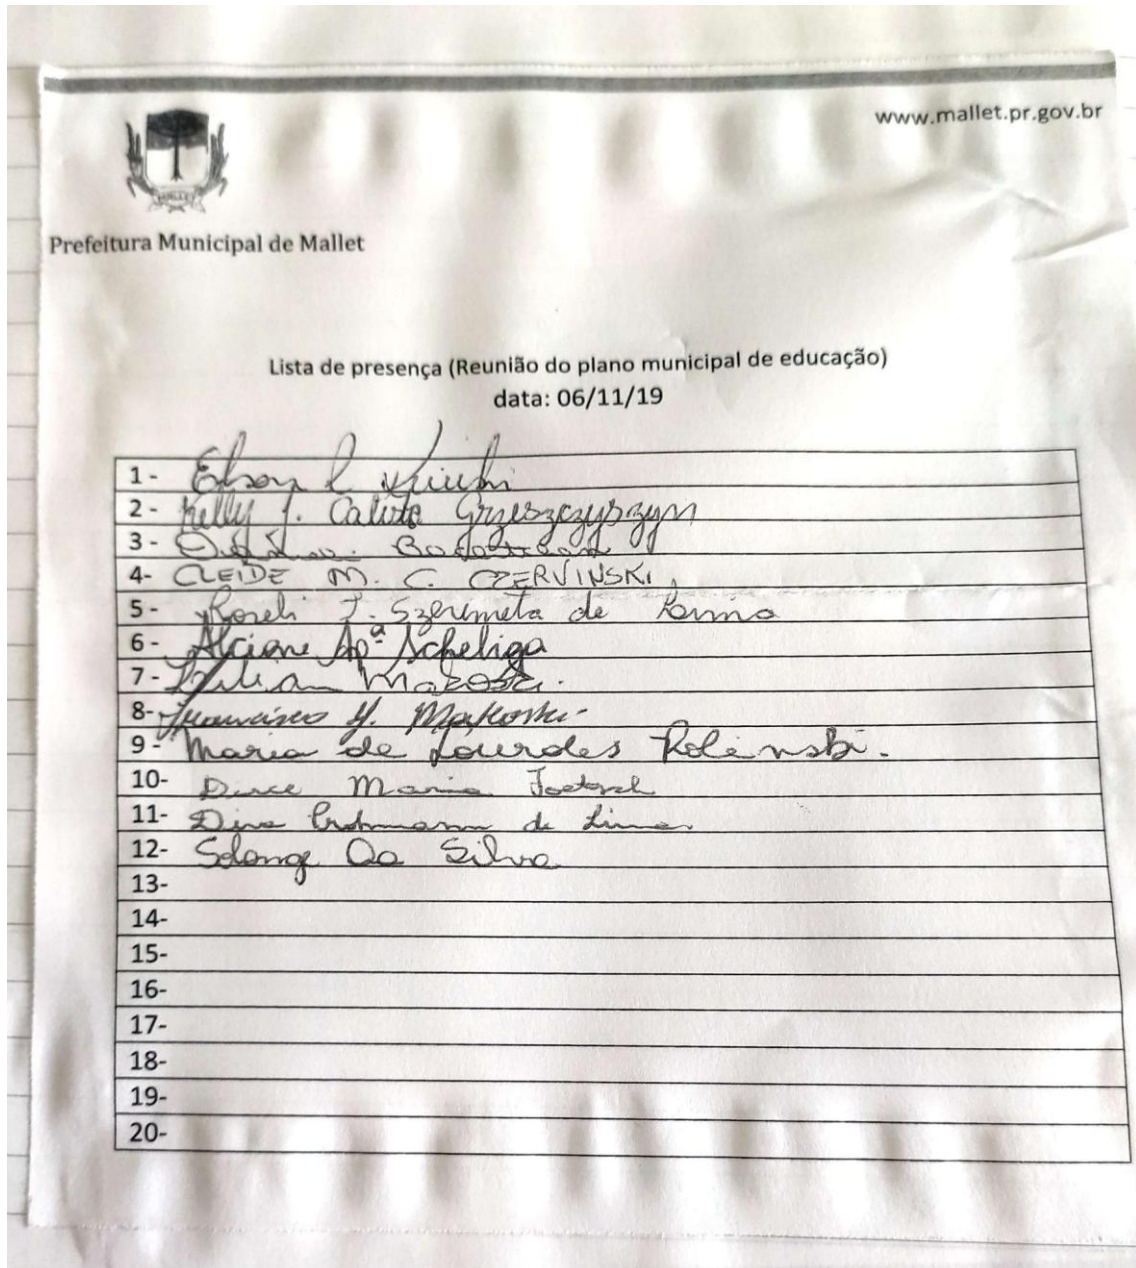 www.mallet.pr.gov.br
MALLET
Prefeitura Municipal de Mallet
Lista de presença (Reunião do plano municipal de educação)
data: 06/11/19
1-
2- Kelly J. Grzeszczyszyn
3-
4- CLEIDE M. C. CZERVINSKI
5- Roseli J. Szeremeta de
6- Alcione Apª Scheliga
7-
8- Francisco Makoski
9- Maria de Lourdes Rolinski.
10- Dirce Maria
11- de Lima
12- Solange Da Silva
13-
14-
15-
16-
17-
18-
19-
20-